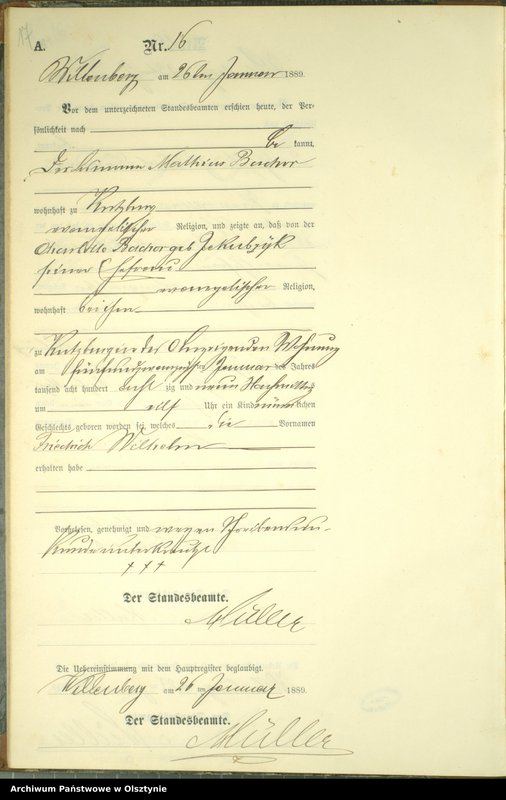 17
A.
Nr. 16
Willenberg am 26ten Januar 1889.
Vor dem unterzeichneten Standesbeamten erschien heute, der Per-
sönlichkeit nach
be kannt,
Der Mathias
wohnhaft zu Kutzburg
evangelischer Religion, und zeigte an, daß von der
Charlotte geb
seiner Ehefrau
evangelischer Religion,
wohnhaft bei ihm
zu Kutzburg in der Wohnung
am fünfundzwanzigsten Januar des Jahres
tausend acht hundert acht zig und neun Nachmittags
um elf Uhr ein Kind männlichen
Geschlechts geboren worden sei, welches die Vornamen
Friedrich Wilhelm
erhalten habe
Vorgelesen, genehmigt und wegen Schreibensun-
kunde unterkreuzt
+ + +
Der Standesbeamte.
Müller
Die Uebereinstimmung mit dem Hauptregister beglaubigt.
Willenberg am 26 ten Januar 1889.
Der Standesbeamte.
Müller
Archiwum Państwowe w Olsztynie